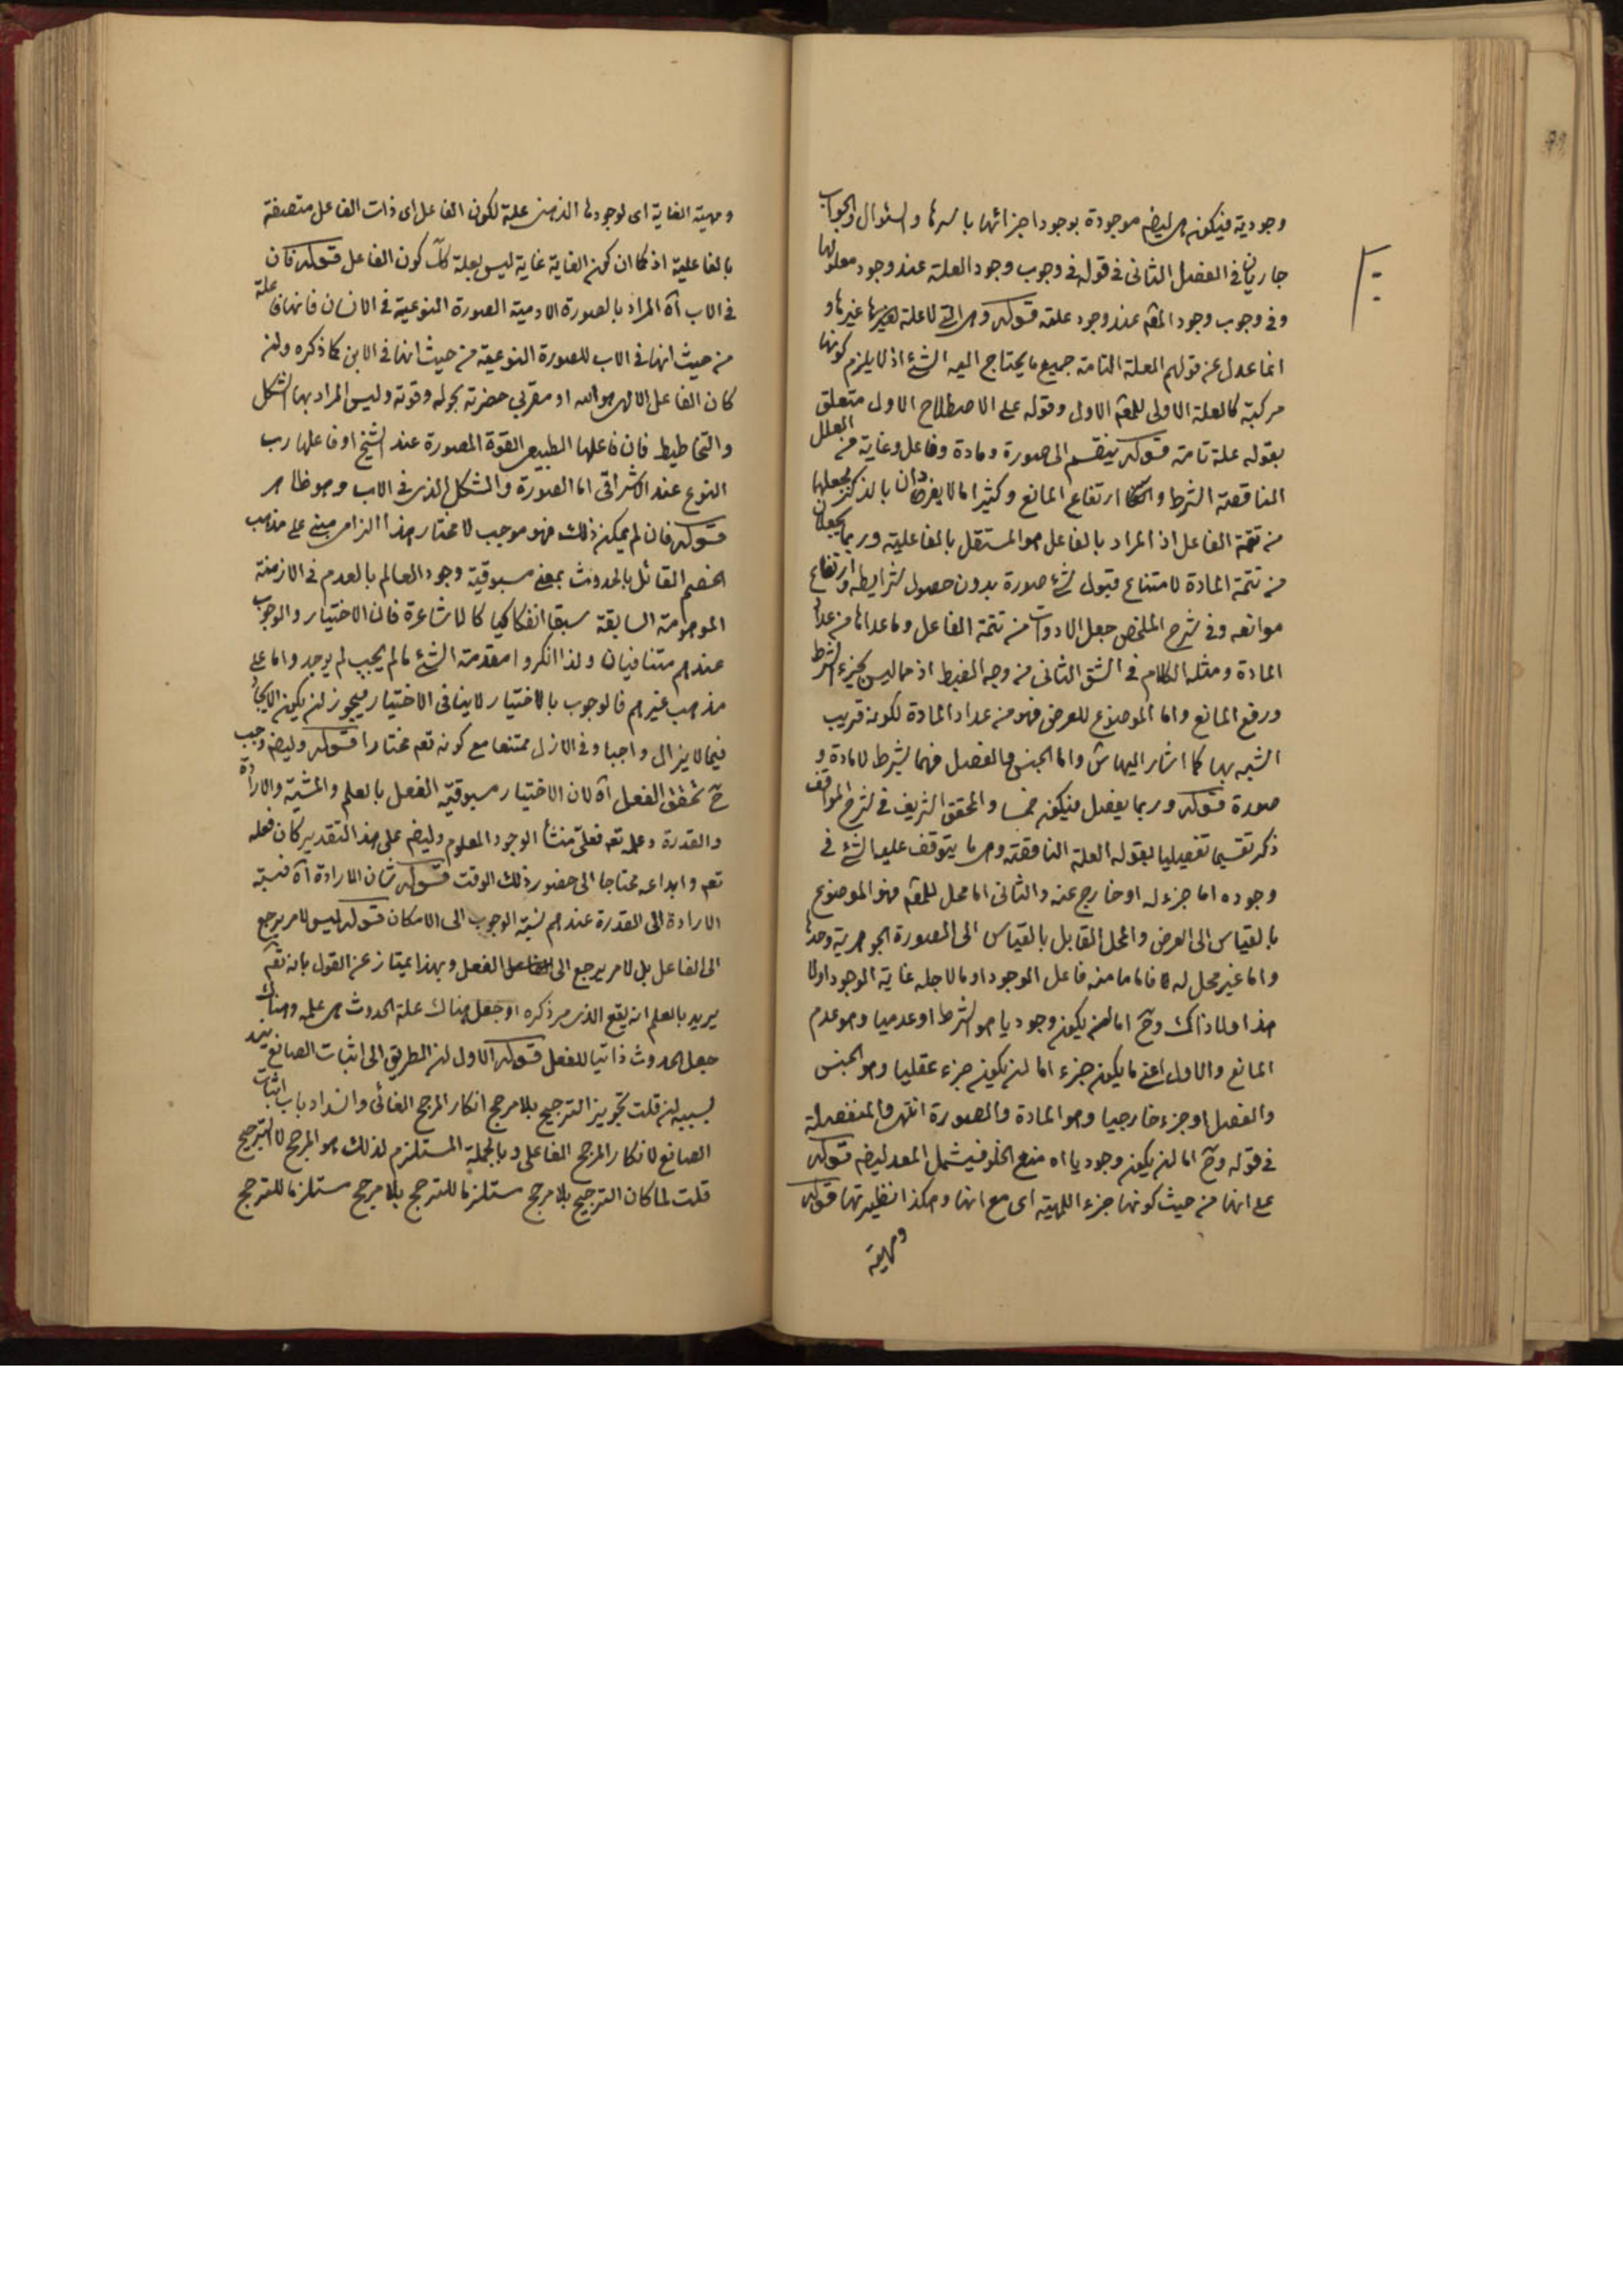 وجودية فيكون هى ايضا موجودة بوجود اجزائها باسرها والسئوال والجواب
جاريان فى الفصل الثانى فى قوله فى وجوب وجود العلة عند وجود معلولها
وفى وجوب وجود المعلم عند وجود علته قوله وهى التى لا علة غيرها و
انما عدل عن قولهم العلة التامة جميع ما يحتاج اليه الشئ اذ لا يلزم كونها
مركبة كالعلة الاولى للمعلم الاول وقوله على الاصطلاح الاول متعلق
بقوله علة تامة قوله ينقسم الى صورة ومادة وفاعل وغاية من العلل
الناقصة الشرط وارتفاع المانع وكثيرا ما لا يفردان بالذكر لجعلها
من تتمة الفاعل اذ المراد بالفاعل هو المستقل بالفاعلية وربما يجعلان
من تتمة المادة لامتناع قبول شئ صورة بدون حصول شرايطه وارتفاع
موانعه وفى شرح الملخص جعل الادوات من تتمة الفاعل وما عداها من عداد
المادة ومثله الكلام فى الشق الثانى من وجه الضبط اذ هما ليس كجزء الشرط
ورفع المانع واما الموضوع للعرض فهو من عداد المادة لكونه قريب
الشبه بها كما اشار اليها ش واما الجنس والفصل فهما لشرط لا مادة و
صورة قوله وربما يفصل فيكون خمسا والمحقق الشريف فى شرح المواقف
ذكر تقسيما تفصيليا بقوله العلة الناقصة وهى ما يتوقف عليه الشئ فى
وجوده اما جزء له او خارج عنه والثانى اما محل للمعلم فهو الموضوع
بالقياس الى العرض والمحل القابل بالقياس الى الصورة الجوهرية وحدها
واما غير محل له فاما ما منه فاعل الموجود او ما لاجله غاية الموجود اولا
هذا ولا ذاك وح اما ان يكون وجوديا هو الشرط او عدميا وهو عدم
المانع والاول اعنى ما يكون جزء اما ان يكون جزء عقليا وهو الجنس
والفصل او جزء خارجيا وهو المادة والصورة انتهى والمنفصلة
فى قوله وح اما ان يكون وجوديا اه منع الخلو فيشمل المعد ايضا قوله
على انها من حيث كونها جزء الماهية اى مع انها وهكذا نظيرتها قوله
ومهية
ومهية الغاية اى لوجودها الذهنى علة لكون الفاعل اى ذات الفاعل متصفة
بالفاعلية اذ كما ان كون الغاية غاية ليس بعلة كك كون الفاعل قوله فان
فى الاب آه المراد بالصورة الادمية الصورة النوعية فى الانسان فانها علة
من حيث انها فى الاب للصورة النوعية من حيث انها فى الابن كما ذكره وان
كان الفاعل الالهى هو الله او مقربى حضرته بحوله وقوته وليس المراد بها الشكل
والتخاطيط فان فاعلها الطبيعى القوة المصورة عند الشيخ او فاعلها رب
النوع عند الاشراقى اما الصورة والشكل الذى فى الاب وهو ظاهر
قوله فان لم يمكن ذلك فهو موجب لا مختار هذا الزام مبنى على مذهب
الخصم القائل بالحدوث بمعنى مسبوقية وجود العالم بالعدم فى الازمنة
الموهومة السابقة سبقا انفكاكيا كالاشاعرة فان الاختيار والوجوب
عندهم متنافيان ولذا انكروا مقدمة الشئ ما لم يجب لم يوجد واما على
مذهب غيرهم فالوجوب بالاختيار لا ينافى الاختيار فيجوز ان يكون الايجاد
فيما لا يزال واجبا وفى الازل ممتنعا مع كونه تعم مختارا قوله وايضا وجب
ح تحقق الفعل آه لان الاختيار مسبوقية الفعل بالعلم والمشية والارادة
والقدرة وعلمه تعم فعلى منشأ الوجود المعلوم وايضا على هذا التقدير كان فعله
تعم وابداعه محتاجا الى حضور ذلك الوقت قوله شان الارادة آه فنسبة
الارادة الى القدرة عندهم نسبة الوجوب الى الامكان قوله ليس لامر يرجع
الى الفاعل بل لامر يرجع الى الفعل وبهذا يمتاز عن القول بانه تعم
يريد بالعلم انه يقع الذى مر ذكره او جعل هناك علة الحدوث هى علمه وهناك
جعل الحدوث ذاتيا للفعل قوله الاول ان الطريق الى اثبات الصانع ينسد
بسببه ان قلت تجويز الترجيح بلا مرجح انكار المرجح الغائى وانسداد باب اثبات
الصانع لانكار المرجح الفاعلى وبالجملة المستلزم لذلك هو المرجح لا الترجيح
قلت لما كان الترجيح بلا مرجح مستلزما للترجح بلا مرجح مستلزما للترجح